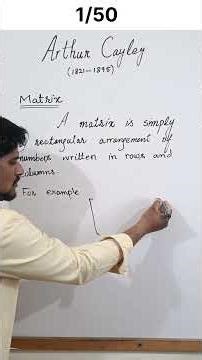 1/50
Arthur Cayley
(1821-1895)
Matrix
A matrix is simply
rectangular arrangement of
numbers written in rows and
columns.
For example